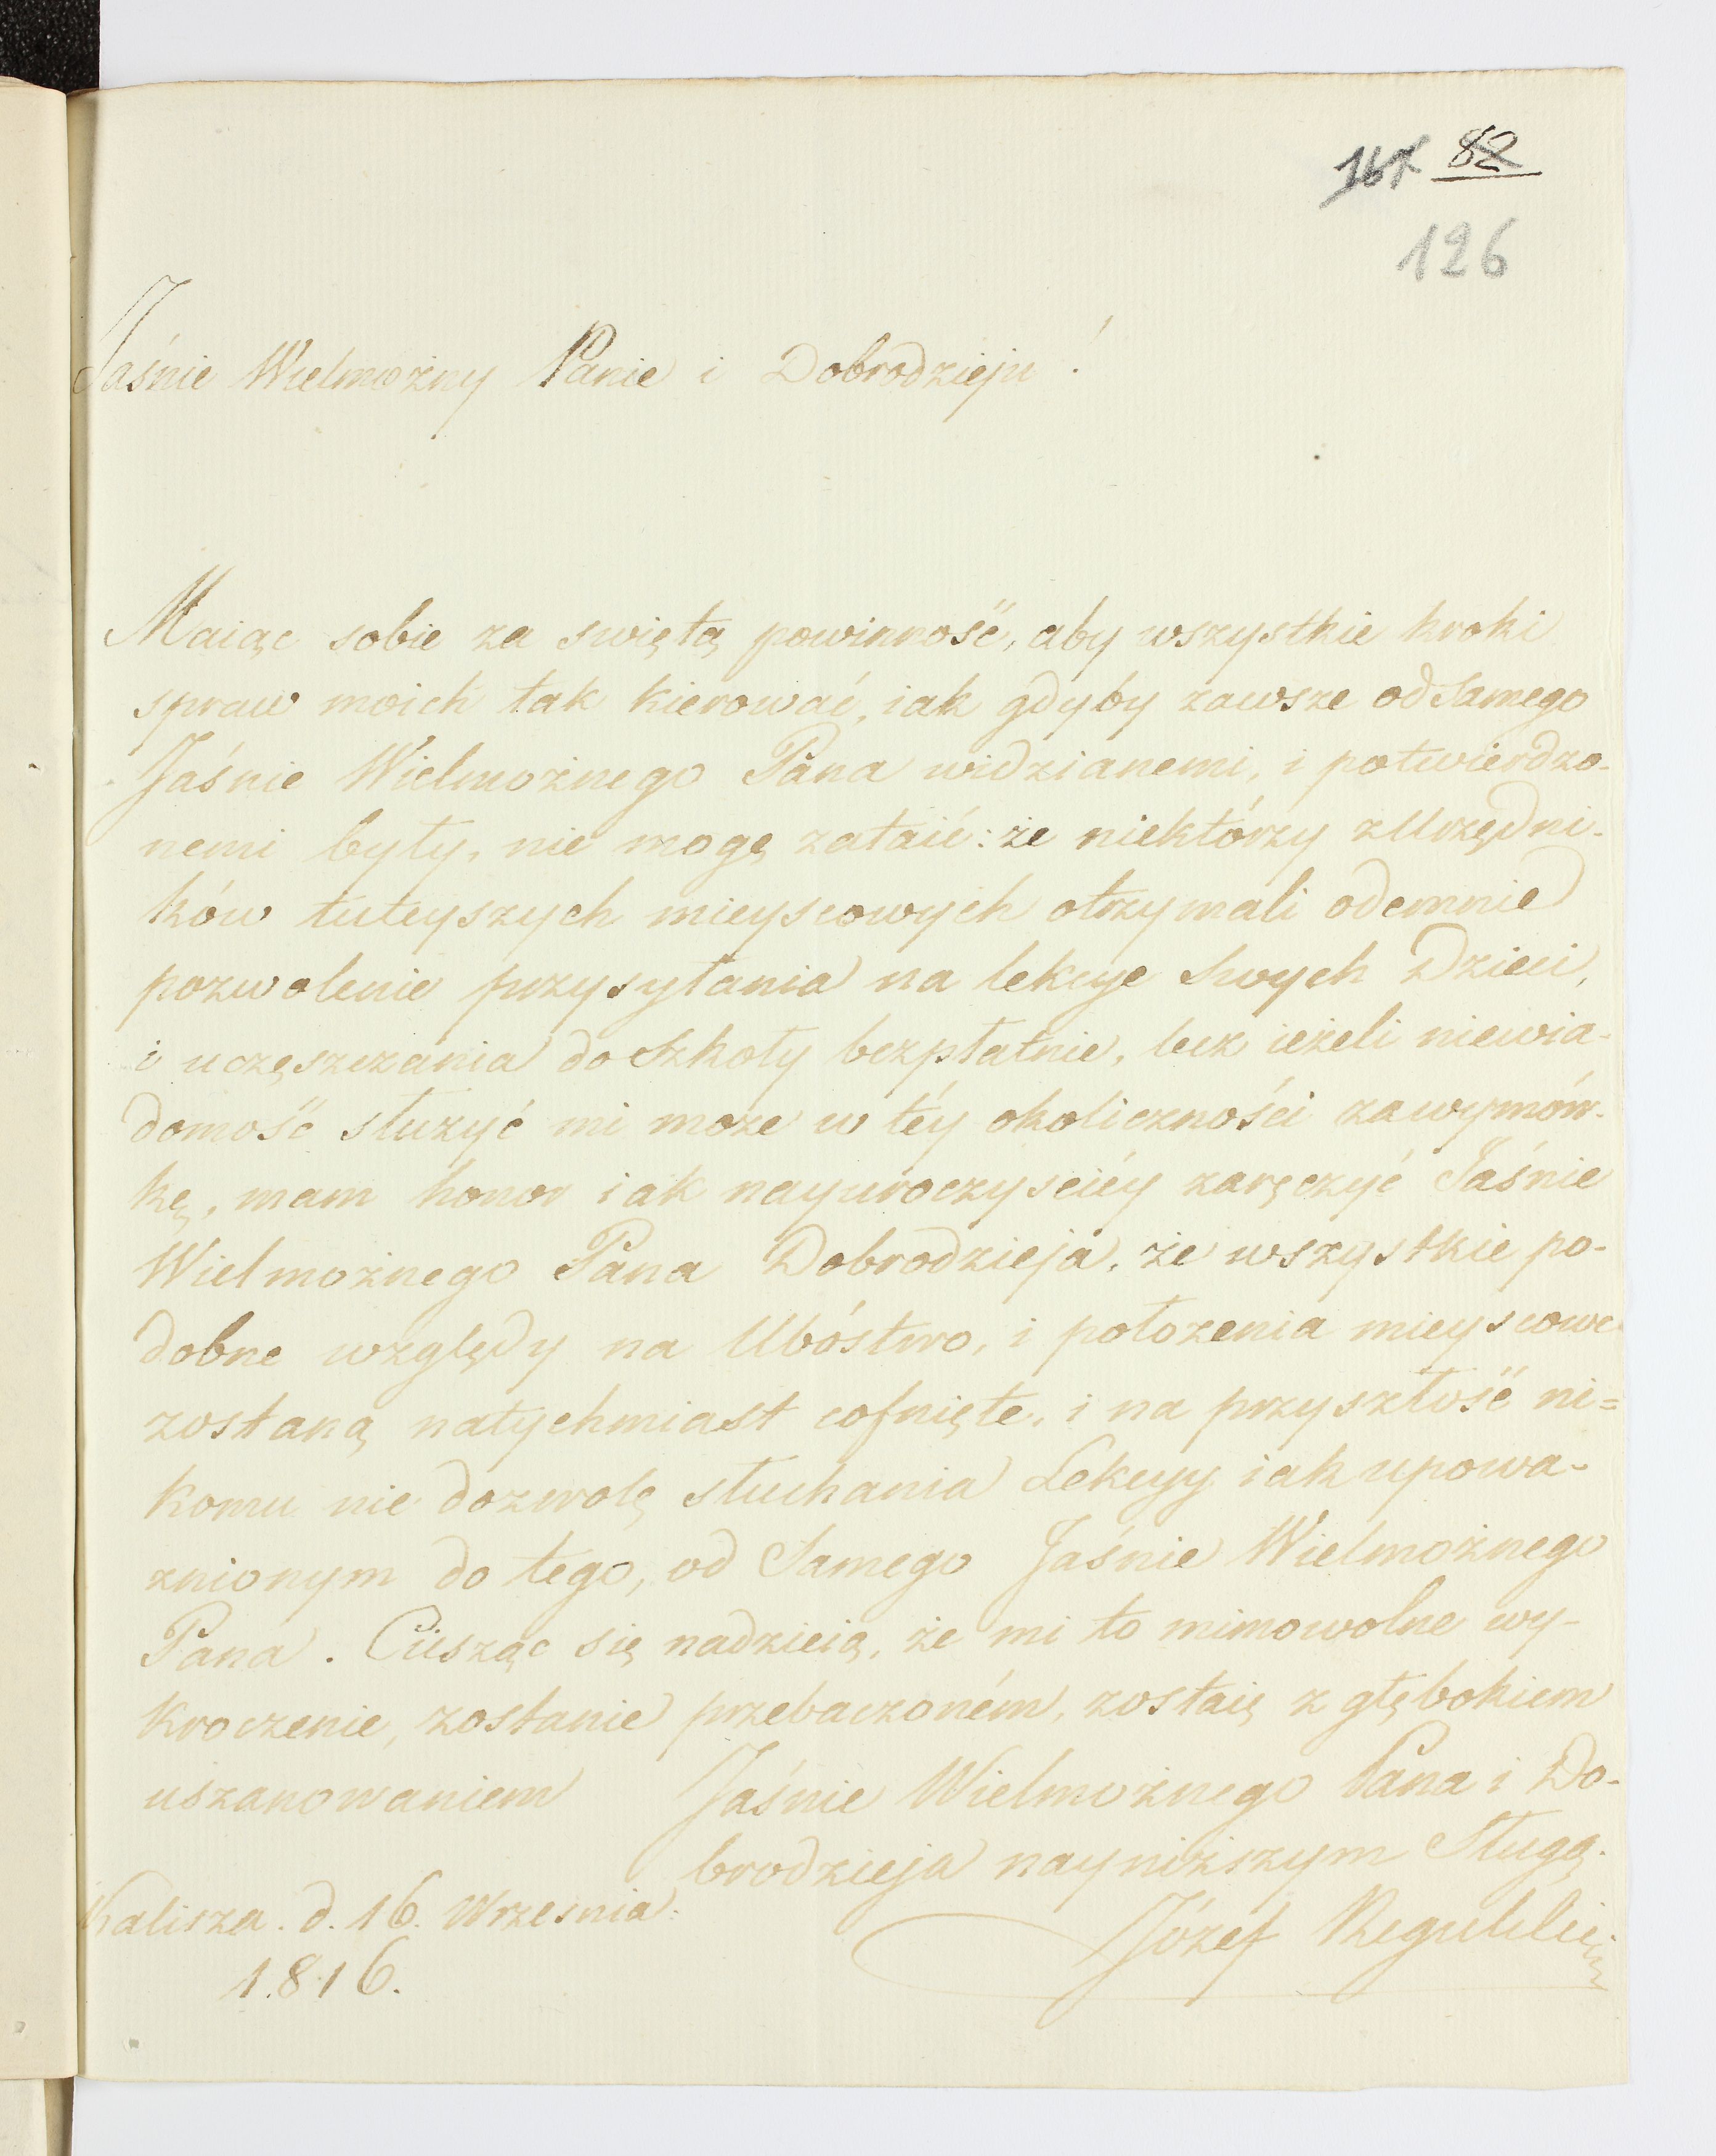 167 82
126
Jaśnie Wielmożny Panie i Dobrodzieju!
Maiąc sobie za swiętą powinność, aby wszystkie kroki
spraw moich tak kierować, iak gdyby zawsze od Samego
Jaśnie Wielmożnego Pana widzianemi, i potwierdzo-
nemi były, nie mogę zataić: że niektórzy z Urzędni-
ków tuteyszych mieyscowych otrzymali odemnie
pozwolenie przysyłania na lekcye Swych Dzieci,
i uczęszczania do Szkoły bezpłatnie, lecz ieżeli niewia-
domość służyć mi może w téy okoliczności za wymów-
kę, mam honor iak nayuroczyściéy zaręczyć Jaśnie
Wielmożnego Pana Dobrodzieja, że wszystkie po-
dobne względy na Ubóstwo, i położenia mieyscowe
zostaną natychmiast cofnięte, i na przyszłość ni=
komu nie dozwolę słuchania Lekcyy iak upowa-
żnionym do tego, od Samego Jaśnie Wielmożnego
Pana. Ciesząc się nadzieią, że mi to mimowolne wy-
kroczenie, zostanie przebaczoném, zostaię z głębokiem
uszanowaniem Jaśnie Wielmożnego Pana i Do-
brodzieja nayniższym Sługą.
Kalisza. d. 16. Wrzesnia.
1816.
Józef